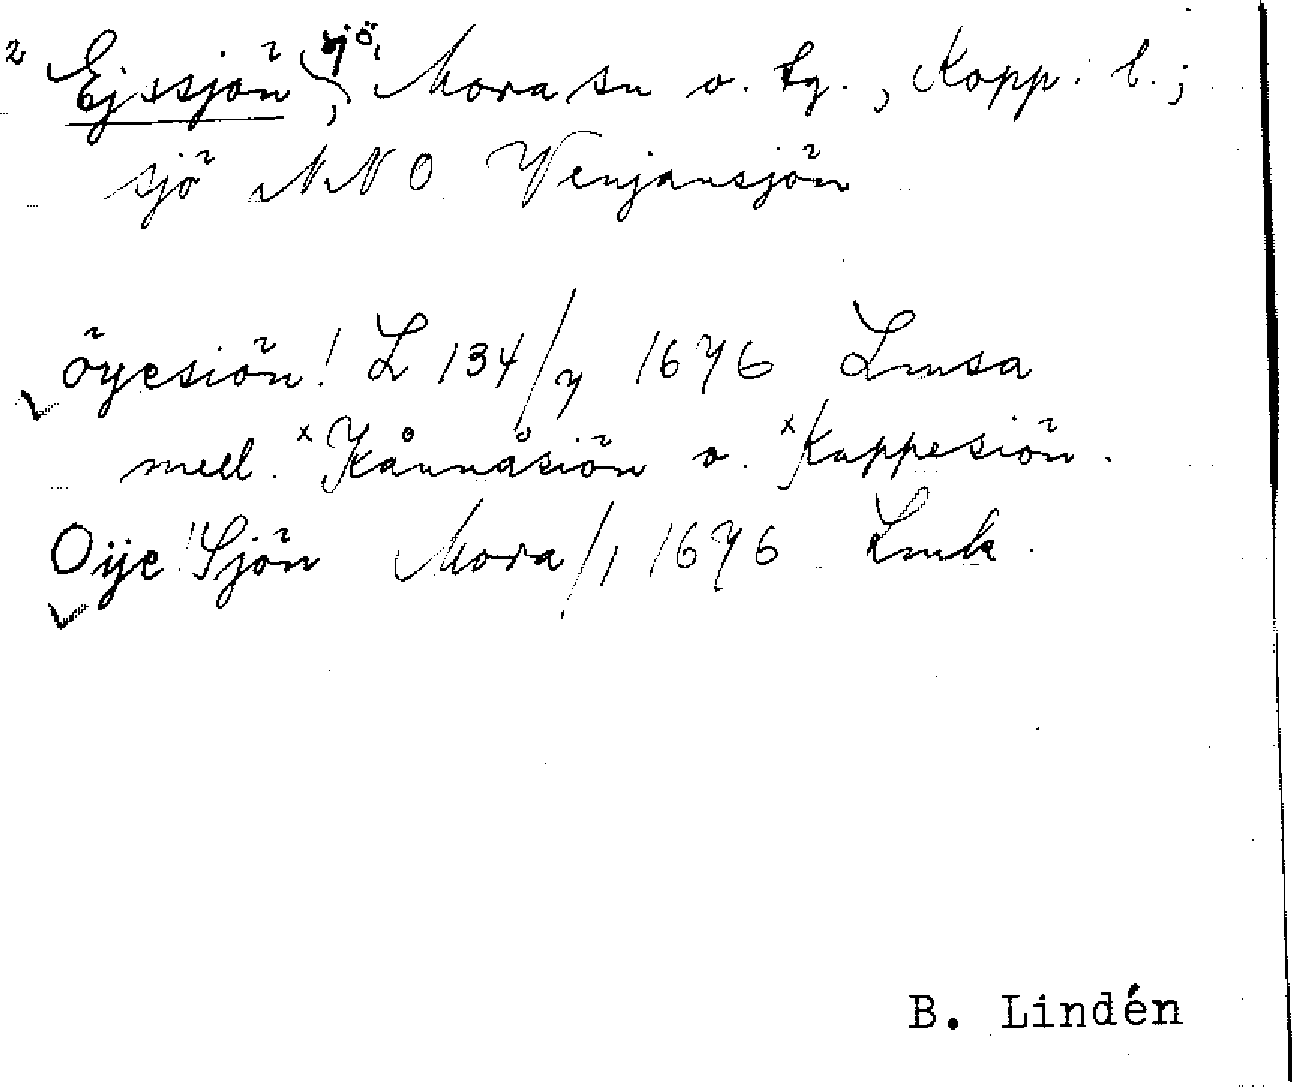 2 Ejssjön, sjö, Mora sn o. tg., Kopp. l.;
sjö NNO Venjansjön
öyesiön! L 134/7 1676 Lmsa
mell. ˣKånnåsiön o. ˣKappesiön.
Oÿe Sjön Mora/1 1676 Lmk.
B. Lindén